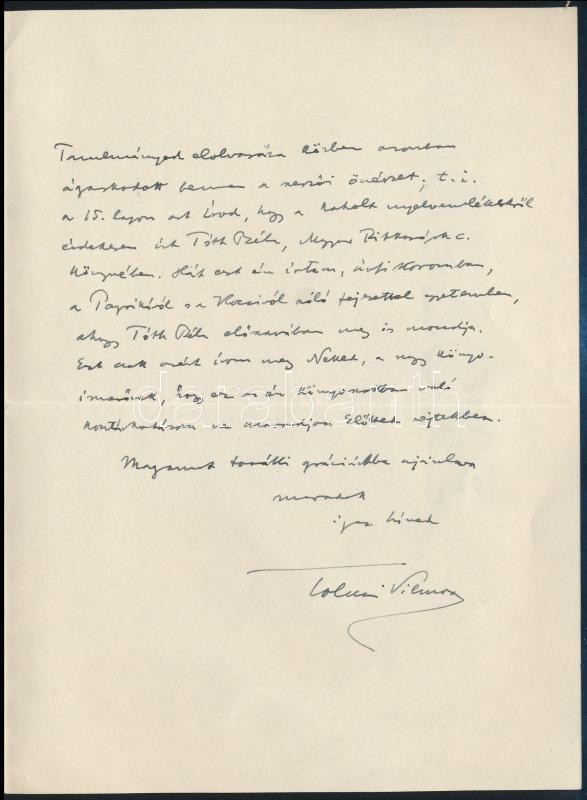 Tanulmányod elolvasása közben azonban
ágaskodott bennem a szerzői önérzet; t. i.
a 15. lapon azt írod, hogy a koholt nyelvemlékekről
érdekesen írt Tóth Béla, Magyar Ritkaságok c.
könyvében. Hát ezt én írtam, ifjúkoromban,
a Paprikáról s a Kocsiról szóló fejezettel egyetemben,
ahogy Tóth Béla előszavában meg is mondja.
Ezt csak azért írom meg Neked, a nagy könyv-
ismerőnek, hogy ez az én könyvesetben való
kontárkodásom ne maradjon Előtted rejtekben.
Magamat további gráciádba ajánlva
maradok
igaz híved
Tolnai Vilmos
darabanth